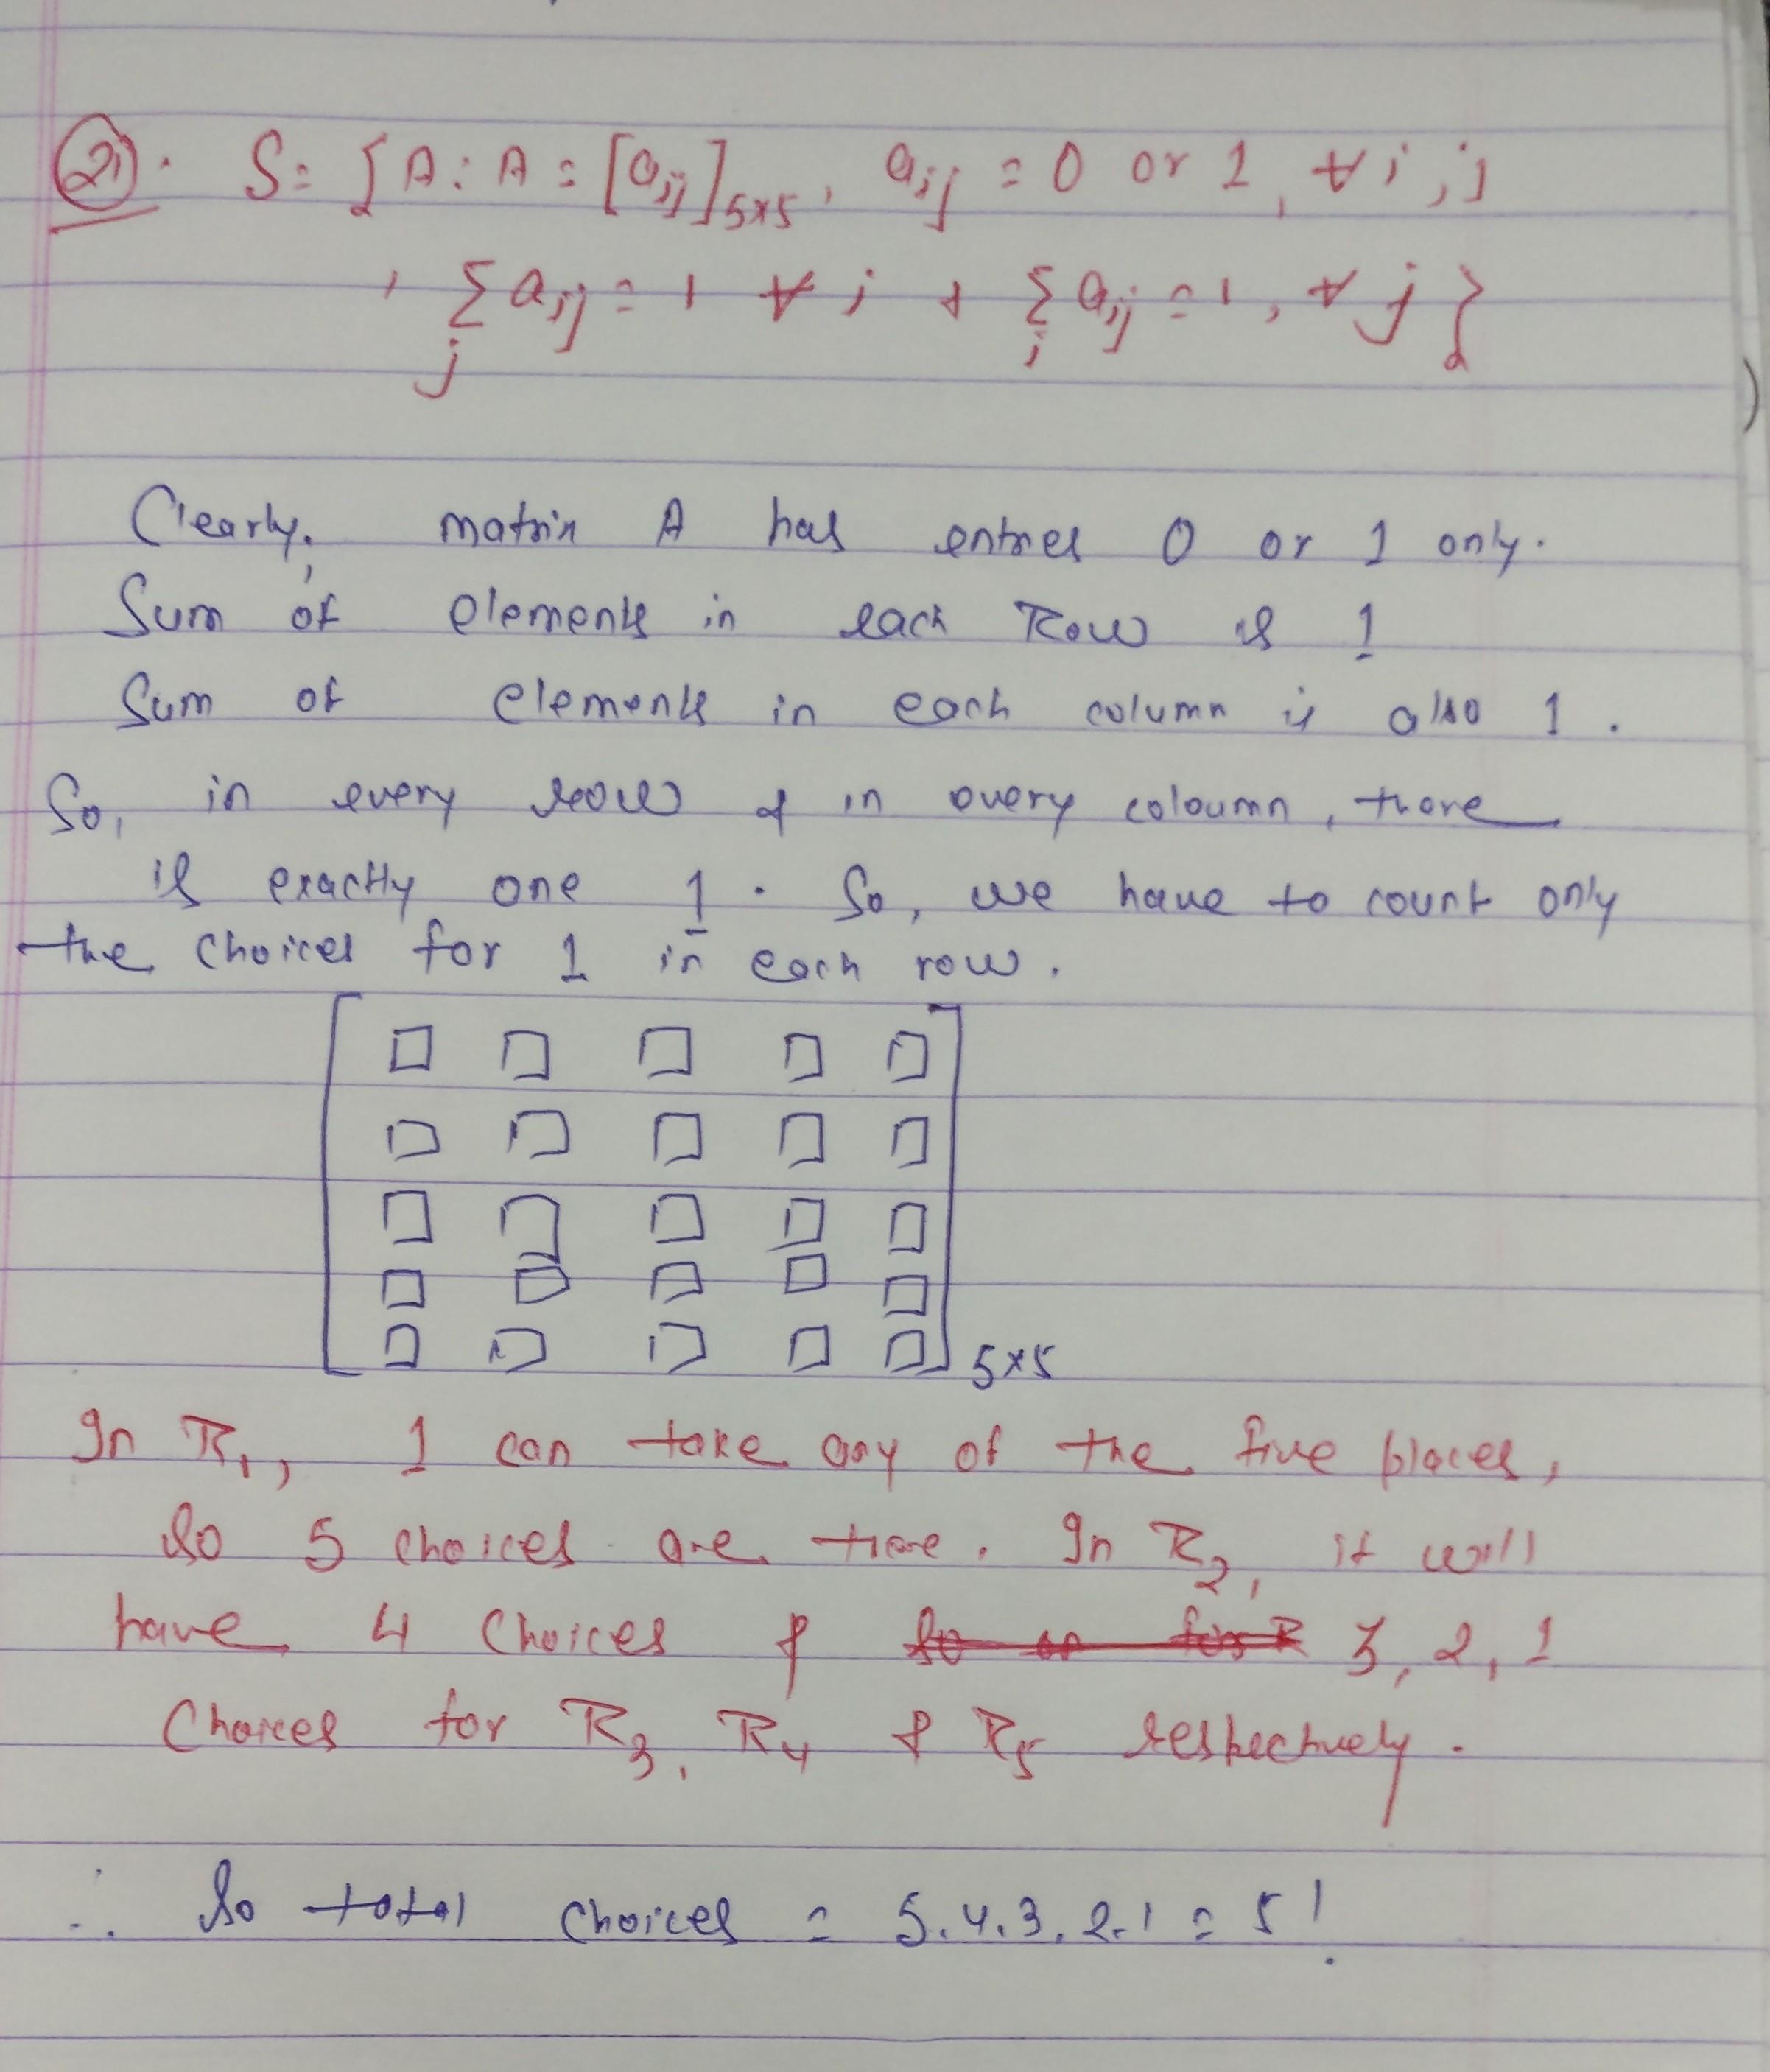 (21). S = { A : A = [aij]5×5, aij = 0 or 1, ∀ i, j
, Σj aij = 1 ∀ i & Σi aij = 1, ∀ j }
Clearly, matrix A has entries 0 or 1 only.
Sum of elements in each Row is 1
Sum of elements in each column is also 1.
So, in every row & in every coloumn, there
is exactly one 1. So, we have to count only
the choices for 1 in each row.
5×5
In R1, 1 can take any of the five places,
so 5 choices are there. In R2, it will
have 4 choices & 3, 2, 1
Choices for R3, R4 & R5 respectively.
∴ So total choices = 5.4.3.2.1 = 5!